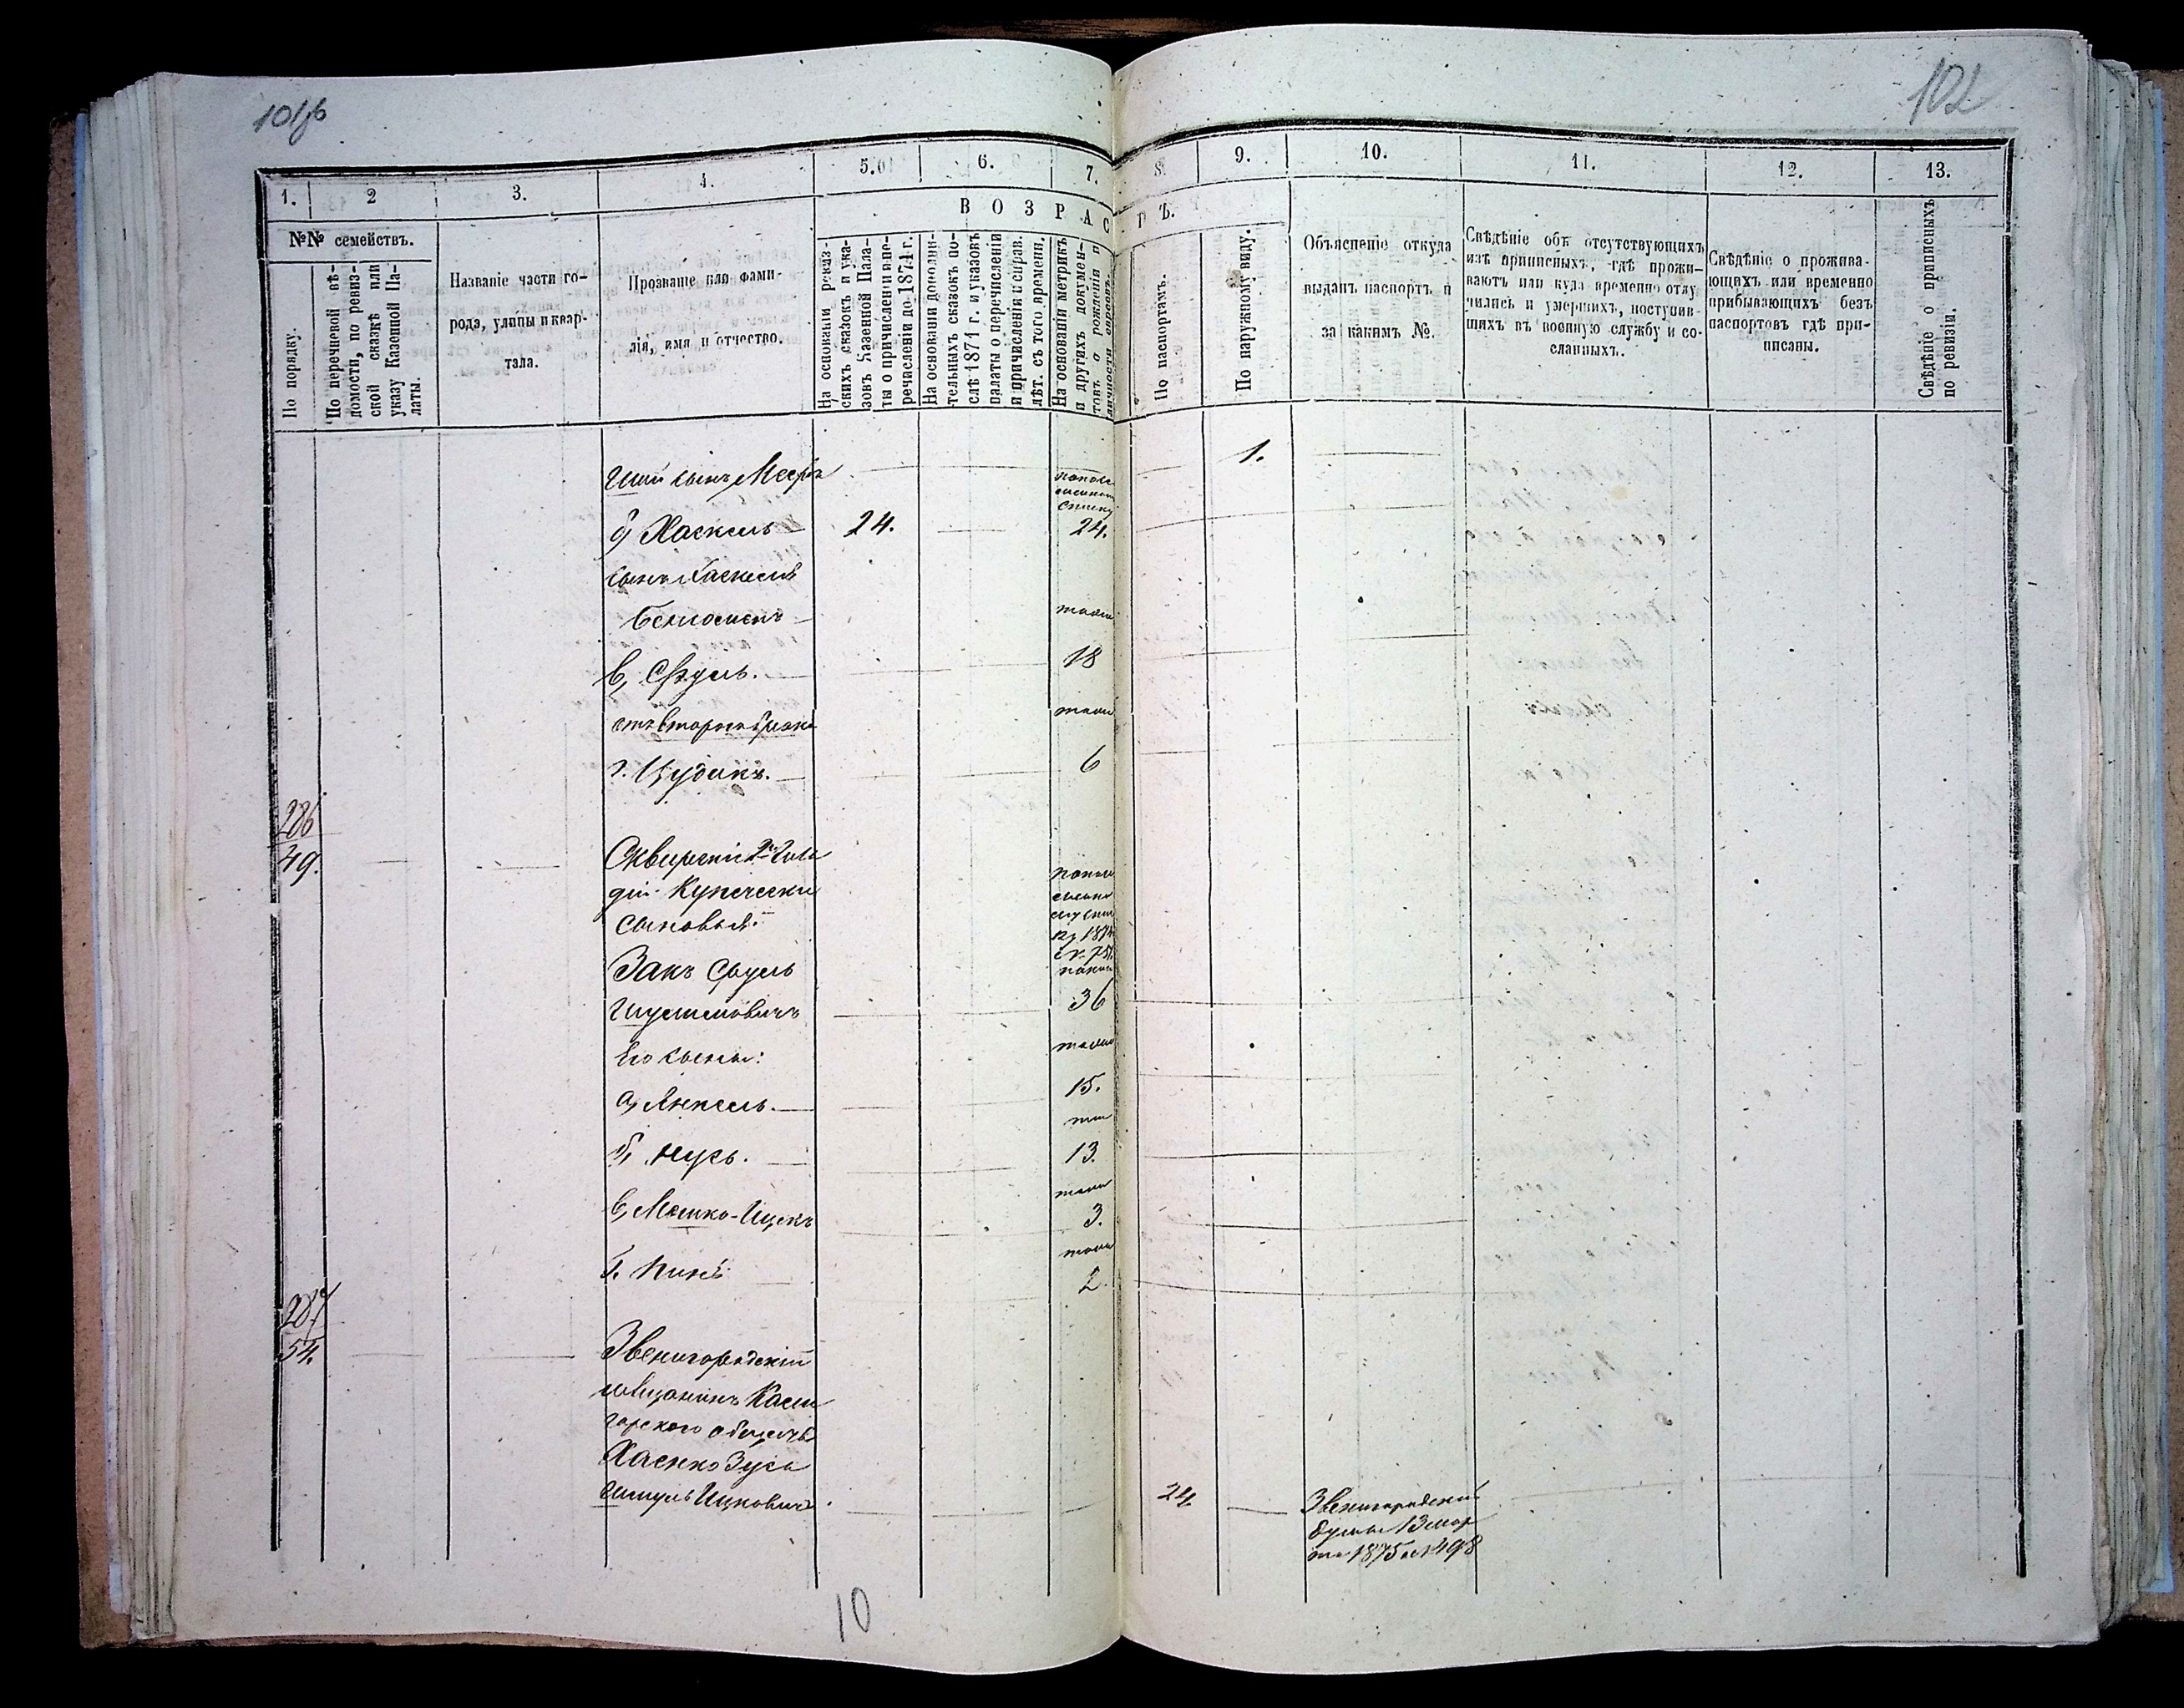 101 об
102
1. 2 3. 4. 5. 6. 7. 8. 9. 10. 11. 12. 13.
№№ семействъ.
По порядку.
По перечневой вѣ-
домости, по ревиз-
ской сказкѣ или
указу Казенной Па-
латы.
Названіе части го-
рода, улицы и квар-
тала.
Прозваніе или фами-
лія, имя и отчество.
ВОЗРАСТЪ.
На основаніи ревиз-
скихъ сказокъ и ука-
зовъ Казенной Пала-
ты о причисленіи и пе-
речисленіи до 1874 г.
На основаніи дополни-
тельныхъ сказокъ по-
слѣ 1871 г. и указовъ
палаты о перечисленіи
и причисленіи и справ.
лѣт. съ того времени.
На основаніи метрикъ
и другихъ докумен-
товъ о рожденіи и
личности евреевъ.
По паспортамъ.
По наружному виду.
Объясненіе откуда
выданъ паспортъ и
за какимъ №.
Свѣдѣніе объ отсутствующихъ
изъ приписныхъ, гдѣ прожи-
ваютъ или куда временно отлу-
чились и умершихъ, поступив-
шихъ въ военную службу и со-
сланныхъ.
Свѣдѣніе о прожива-
ющихъ или временно
прибывающихъ безъ
паспортовъ гдѣ при-
писаны.
Свѣдѣніе о приписныхъ
по ревизіи.
сынъ Мееръ 1.
б, Хаскель 24. 24.
сынъ Хаскеля
Беньоменъ
в, Сруль. 18
отъ втораго брака
г. Иудикъ. 6
286
49. Сквирскіе 2й Гиль
діи Купеческіе
сыновья:
Закъ Сруль
36
Его сыны:
а, Янкель. 15.
б, Нусь. 13.
в, Мошко-Ицекъ 3.
г. Пинь 2.
287
54. Звенигородскій
мѣщанинъ
общества
Хаенко Зусь
Шмуль Ицковичъ. 24. Звенигородской
думы 13 мар
та 1875 № 498
10